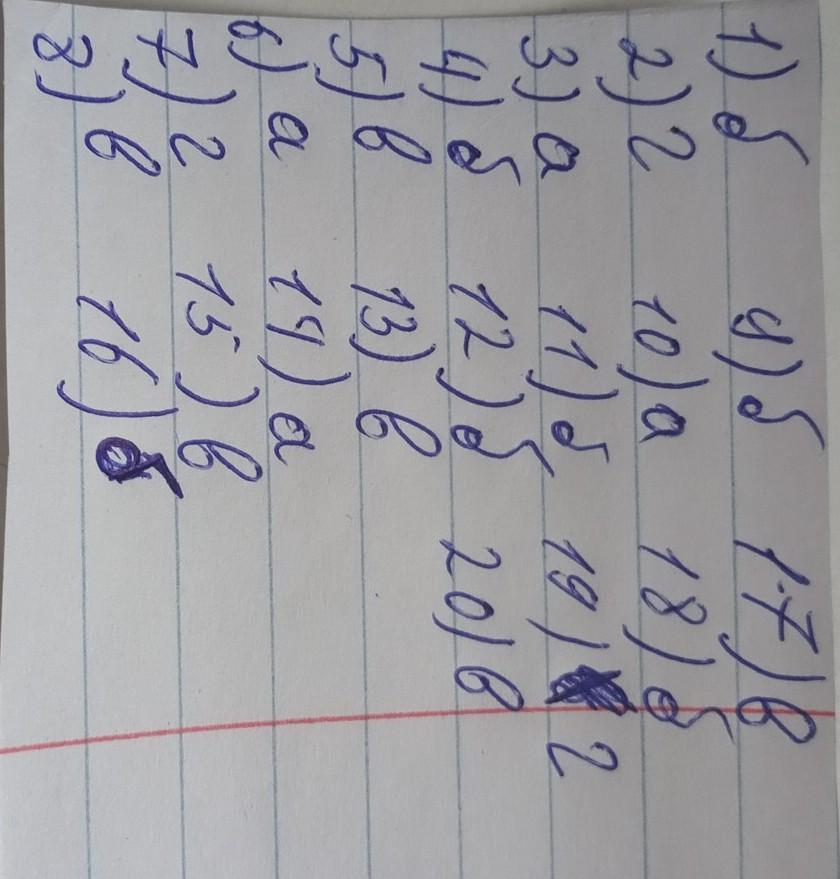 1) б
2) г
3) а
4) б
5) в
6) а
7) г
8) в
9) б
10) а
11) б
12) б
13) в
14) а
15) в
16) б
17) в
18) б
19) г
20) в